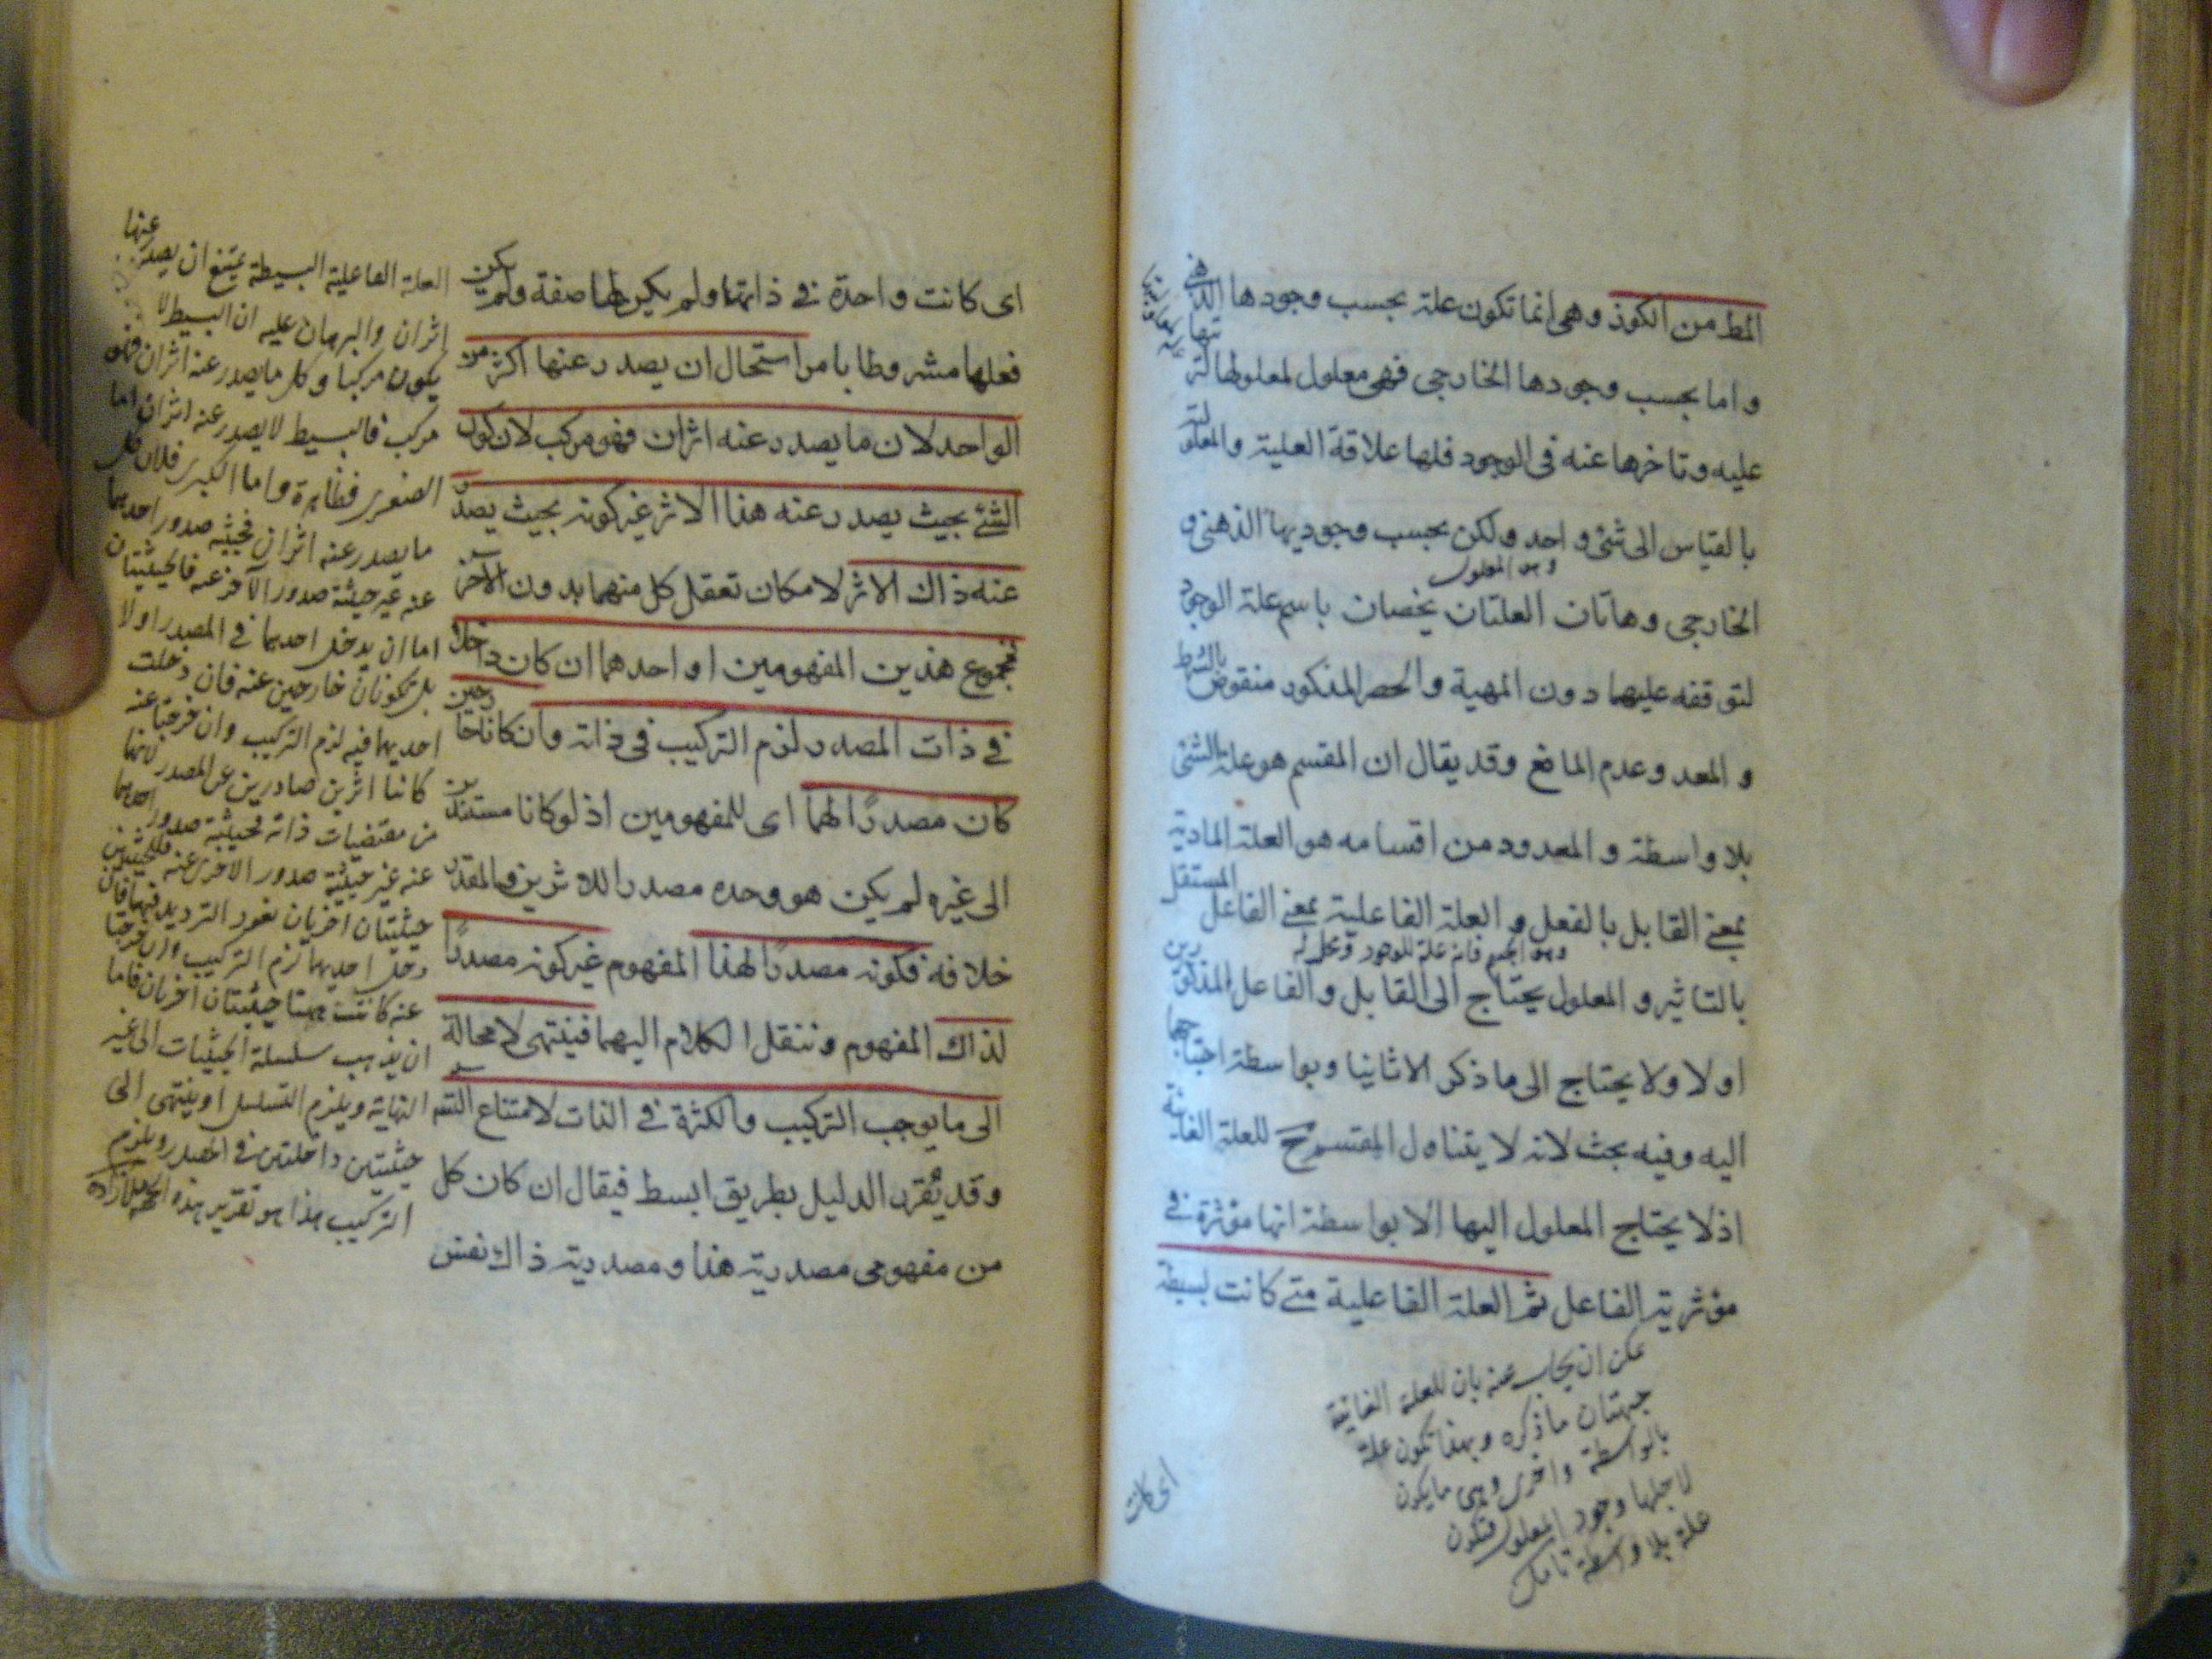 المط من الكوز وهى انما تكون علة بحسب وجودها الذهنى
واما بحسب وجودها الخارجى فهى معلول لمعلولها لترتبها
عليه وتاخرها عنه فى الوجود فلها علاقة العلية والمعلولية
بالقياس الى شئ واحد ولكن بحسب وجوديها الذهنى و
وهو المعلول
الخارجى وهاتان العلتان يخصان باسم علة الوجود
لتوقفه عليهما دون المهية والحصر المذكور منقوض بالشرط
و المعد وعدم المانع وقد يقال ان المقسم هو علة الشئ
بلا واسطة و المعدود من اقسامه هو العلة المادية
بمعنى القابل بالفعل و العلة الفاعلية بمعنى الفاعل المستقل
وهو الجسم فانه علة للوجود ومحل له
بالتاثير و المعلول يحتاج الى القابل و الفاعل المذكورين
اولا ولا يحتاج الى ما ذكر الا ثانيا وبواسطة احتياجهما
اليه وفيه بحث لانه لا يتناول المقسم ح للعلة الغائية
اذ لا يحتاج المعلول اليها الا بواسطة انها مؤثرة فى
مؤثرية الفاعل ثم العلة الفاعلية متى كانت بسيطة
يمكن ان يجاب عنه بان للعلة الغائية
جهتان ما ذكره وبهذا تكون علة
بالواسطة واخرى وهى ما يكون
لاجلها وجود المعلول فتكون
علة بلا واسطة تامل
اى كانت
اى كانت واحدة فى ذاتها ولم يكن لها صفة ولم يكن
فعلها مشروطا بامر استحال ان يصدر عنها اكثر من
الواحد لان ما يصدر عنه اثران فهو مركب لان كون
الشئ بحيث يصدر عنه هذا الاثر غير كونه بحيث يصدر
عنه ذاك الاثر لامكان تعقل كل منهما بدون الآخر
فمجموع هذين المفهومين او احدهما ان كان داخلا
فى ذات المصدر لزم التركيب فى ذاته وان كانا خارجين
كان مصدرًا لهما اى للمفهومين اذ لو كانا مستندين
الى غيره لم يكن هو وحده مصدرا للاثرين والمقدر
خلافه فكونه مصدرًا لهذا المفهوم غير كونه مصدرًا
لذاك المفهوم وننقل الكلام اليهما فينتهى لا محالة
الى ما يوجب التركيب والكثرة فى الذات لامتناع التسـ
وقد يُقرر الدليل بطريق ابسط فيقال ان كان كل
من مفهومى مصدرية هذا و مصدرية ذاك نفس
العلة الفاعلية البسيطة يمتنع ان يصدر عنها
اثران والبرهان عليه ان البسيط لا
يكون مركبا وكل ما يصدر عنه اثران فهو
مركب فالبسيط لا يصدر عنه اثران اما
الصغرى فظاهرة واما الكبرى فلان كل
ما يصدر عنه اثران فحيثية صدور احدهما
عنه غير حيثية صدور الآخر عنه فالحيثيتان
اما ان يدخل احدهما فى المصدر اولا
بل تكونان خارجين عنه فان دخلت
احديهما فيه لزم التركيب وان خرجتا عنه
كانتا اثرين صادرين عن المصدر لانهما
من مقتضيات ذاته فحيثية صدور احدهما
عنه غير حيثية صدور الاخرى عنه فللحيثيتين
حيثيتان اخريان نعود الترديد فيهما فان
دخل احديهما لزم التركيب وان خرجتا
عنه كانت حيثيتان اخريان فاما
ان يذهب سلسلة الحيثيات الى غير
النهاية ويلزم التسلسل او ينتهى الى
حيثيتين داخلتين فى المصدر ويلزم
التركيب هذا هو تقرير هذه